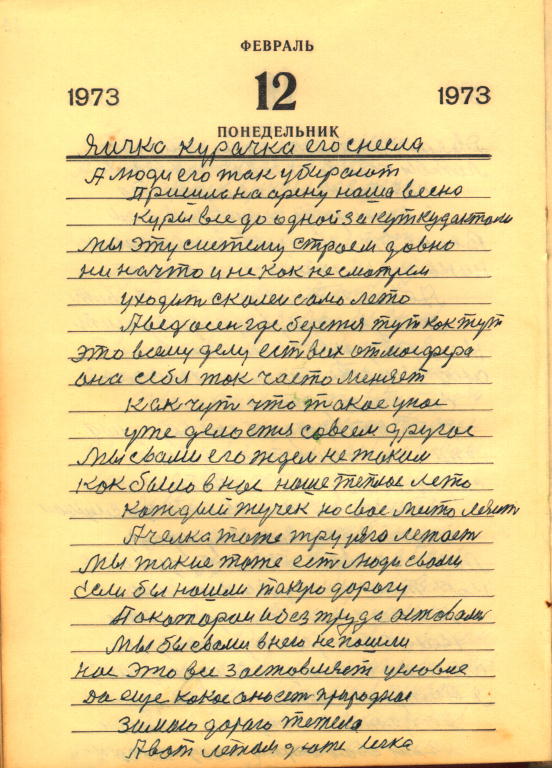 ФЕВРАЛЬ
1973 12 1973
ПОНЕДЕЛЬНИК
Яичка курачка его снесла
А люди его так убирают
Пришила на арену наша весно
Куры все до одной за кут
Мы эту систему строем довно
ни на что и не как не смотрем
уходит сколеи само лето
А ведь осен где берется тут как тут
это всему делу ест вся отмосфера
она себя так часто меняет
как чут что такое у нас
уже делается совсем другое
Мы свами его ждем не таким
как было в нас наше теплое лето
каждый жучек но свое лето
А челка тоже летает
Мы такие тоже ест люди свами
если бы нашли такую дорогу
По каторай и без труда
Мы бы свами в него не пошли
нас это все заставляет условие
Да еще какое оно ест природнае
Зимаю дорого тежело
А вот летам легка